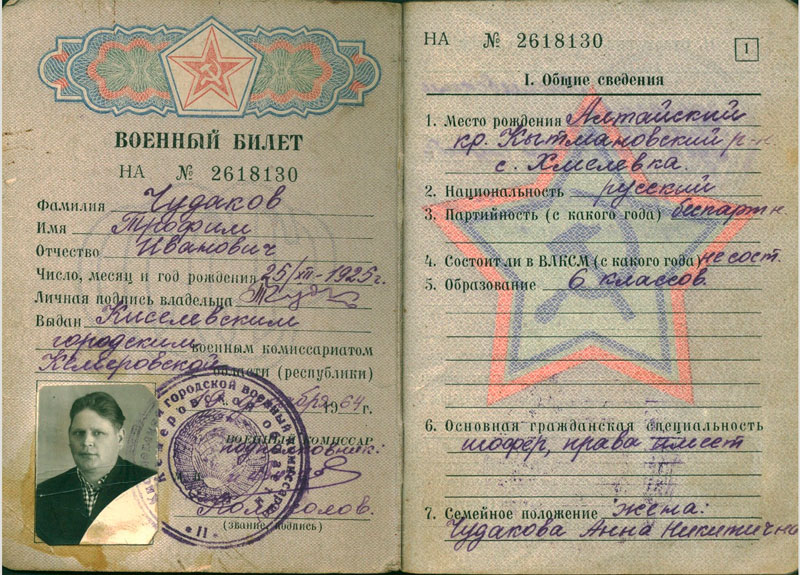 ВОЕННЫЙ БИЛЕТ
НА № 2618130
Фамилия Чудаков
Имя Трофим
Отчество Иванович
Число, месяц и год рождения 25/XII-1925г.
Личная подпись владельца
Выдан Киселевским
городским военным комиссариатом
Кемеровской области (республики)
1964 г.
ВОЕННЫЙ КОМИССАР
подполковник:
(звание, подпись)
НА № 2618130
1
I. Общие сведения
1. Место рождения Алтайский
кр. Кытмановский р-н
с. Хмелевка.
2. Национальность русский
3. Партийность (с какого года) беспартн.
4. Состоит ли в ВЛКСМ (с какого года) не сост.
5. Образование 6 классов.
6. Основная гражданская специальность
шофер, права имеет
7. Семейное положение жена:
Чудакова Анна Никитична